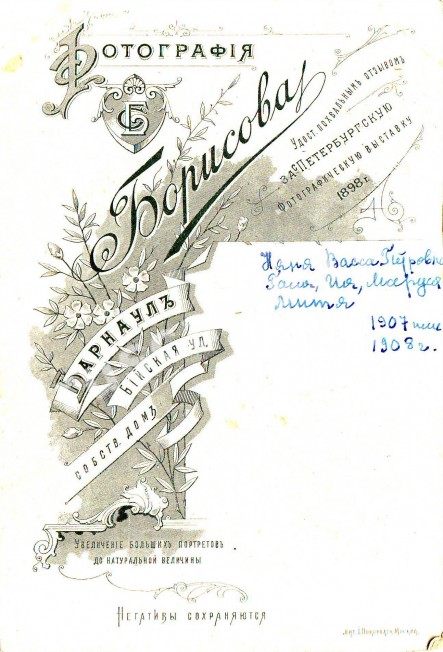 Фотографія
СБ
Борисова
Удост. похвальнымъ отзывомъ
за С. Петербургскую
Фотографическую выставку
1898 г.
Няня Васса Петровна
Галя, Ия, Маруся
Митя
1907 или
1908 г.
Барнаулъ
Бійская ул.
собств. домъ
Увеличеніе большихъ портретовъ
до натуральной величины
Негативы сохраняются
Москва